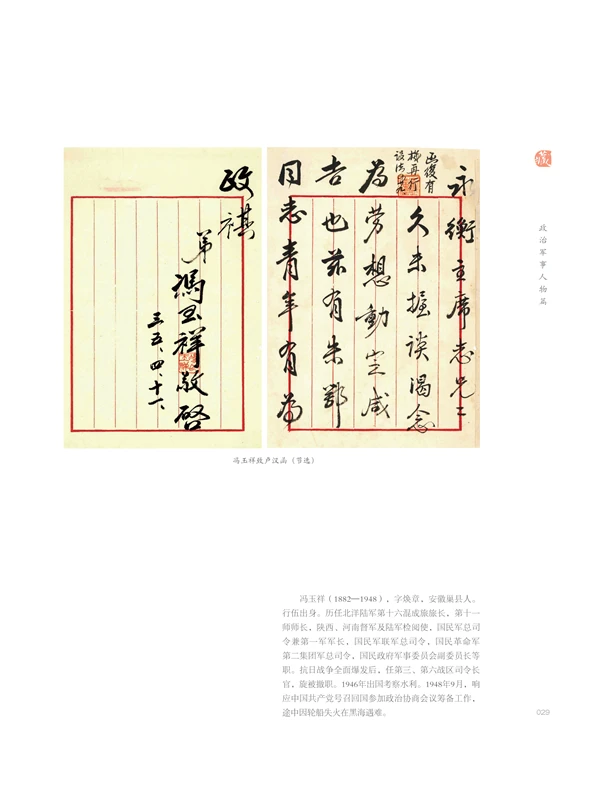 永衡主席志兄：
函復有
機再行
設法
久未握談渴念
為勞想動定咸
吉也茲有朱鄂
同志青年有為
政祺
弟馮玉祥敬啓
三五、四、十一、
冯玉祥致卢汉函（节选）
政治军事人物篇
冯玉祥（1882—1948），字焕章，安徽巢县人。
行伍出身。历任北洋陆军第十六混成旅旅长，第十一
师师长，陕西、河南督军及陆军检阅使，国民军总司
令兼第一军军长，国民军联军总司令，国民革命军
第二集团军总司令，国民政府军事委员会副委员长等
职。抗日战争全面爆发后，任第三、第六战区司令长
官，旋被撤职。1946年出国考察水利。1948年9月，响
应中国共产党号召回国参加政治协商会议筹备工作，
途中因轮船失火在黑海遇难。
029